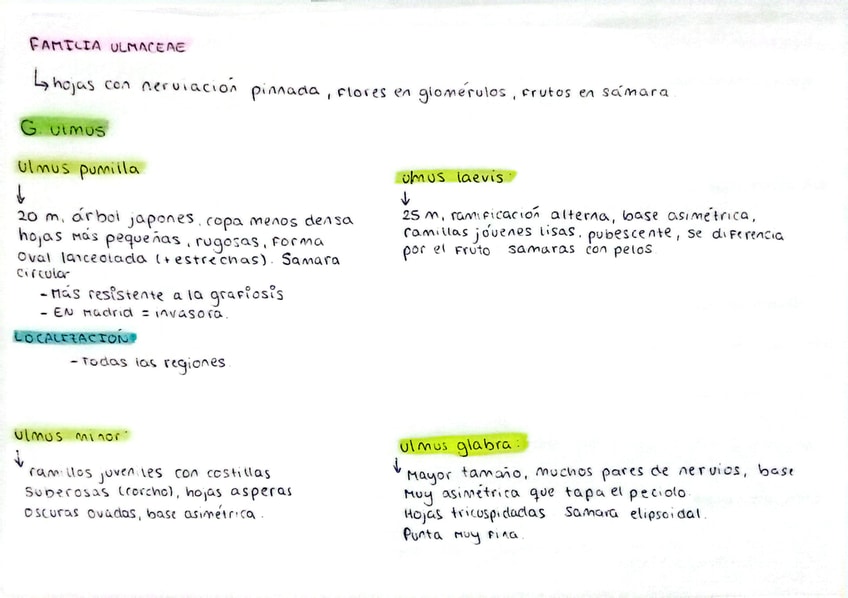 FAMILIA ULMACEAE
↳ hojas con nerviación pinnada, flores en glomérulos, frutos en sámara
G. ulmus
ulmus pumilla
↓
20 m, árbol japones, copa menos densa
hojas más pequeñas, rugosas, forma
oval lanceolada (+ estrechas). Samara
circular
- Más resistente a la grafiosis
- EN Madrid = invasora.
LOCALIZACIÓN:
- Todas las regiones.
ulmus laevis:
↓
25 m, ramificación alterna, base asimétrica,
ramillas jóvenes lisas, pubescente, se diferencia
por el fruto samaras con pelos
ulmus minor:
↓
ramillos juveniles con costillas
suberosas (corcho), hojas asperas
oscuras ovadas, base asimétrica.
ulmus glabra:
↓ Mayor tamaño, muchos pares de nervios, base
Muy asimétrica que tapa el peciolo.
Hojas tricuspidadas samara elipsoidal.
Punta muy fina.